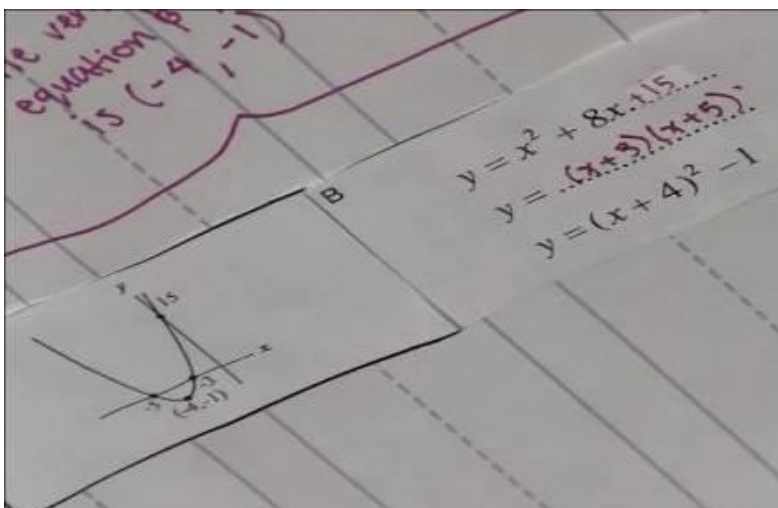 equation B
is (-4, -1)
B
y = x² + 8x +15
y = (x+3)(x+5)
y = (x + 4)² − 1
y
15
x
-3
-5
(-4,-1)